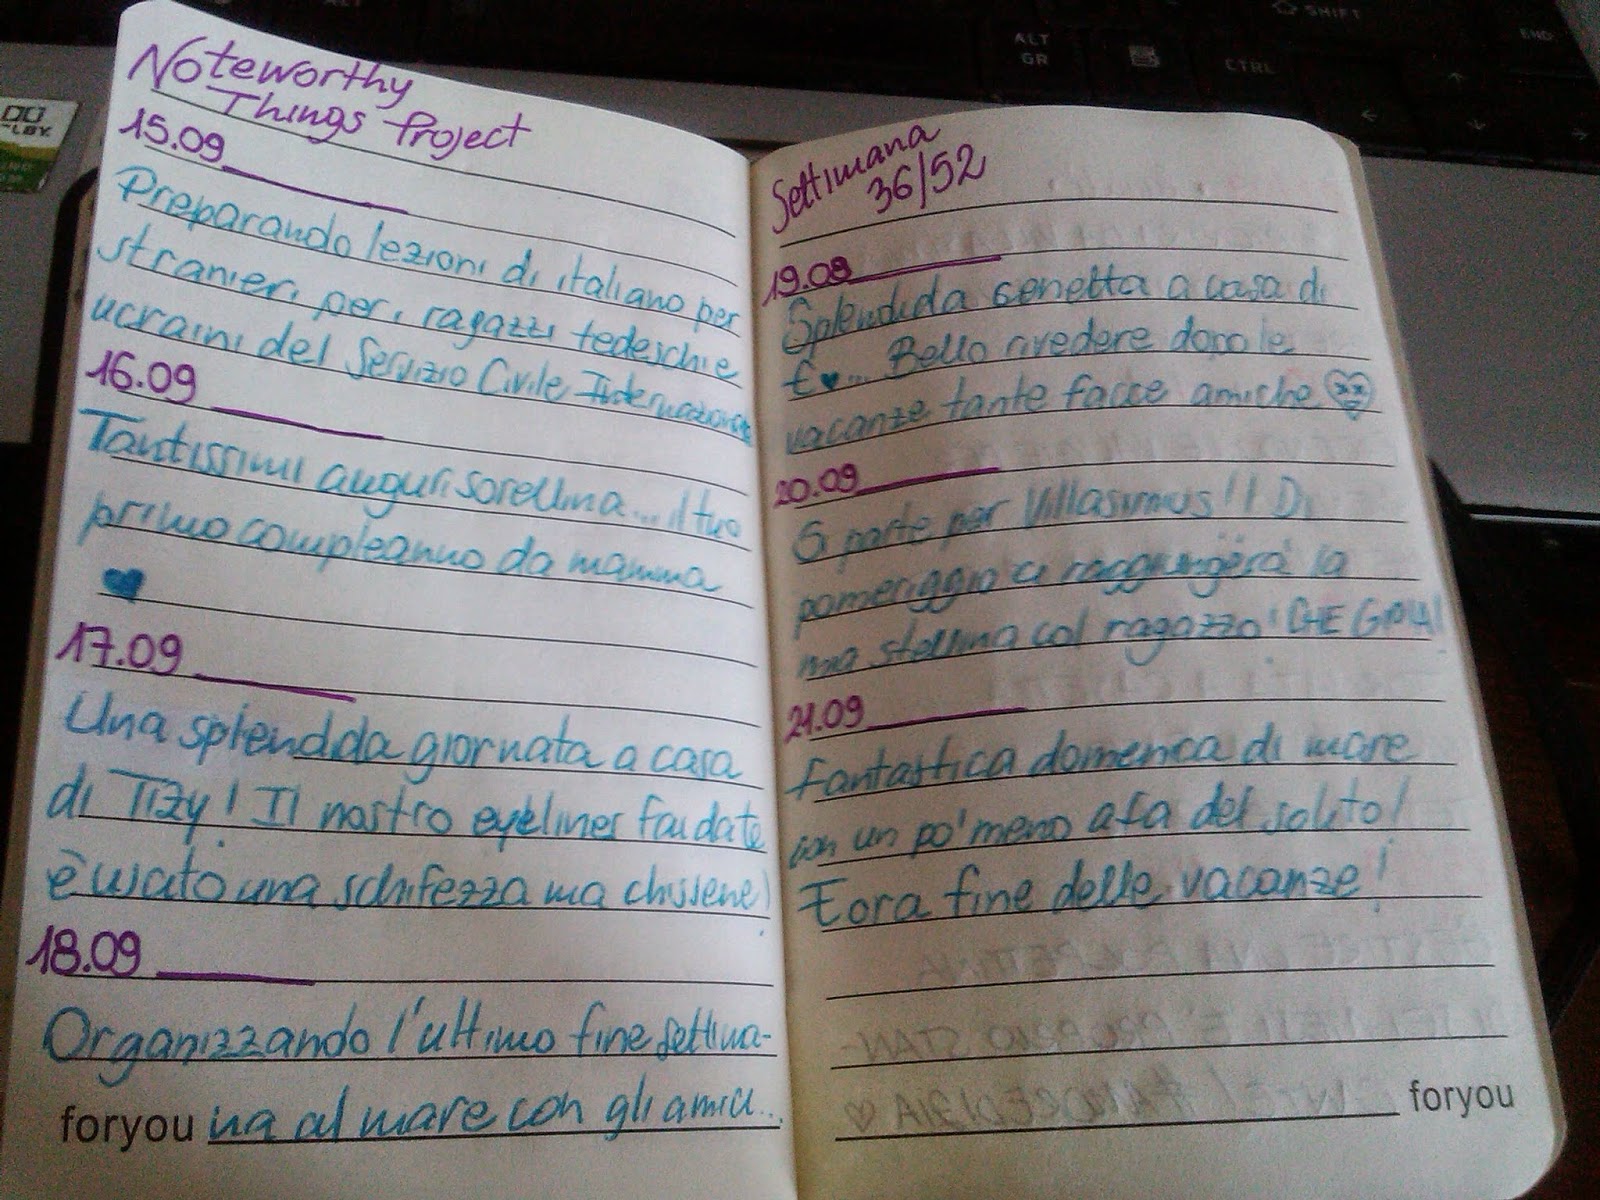 Noteworthy
Things Project
15.09
Preparando lezioni di italiano per
stranieri per i ragazzi tedeschi e
ucraini del Servizio Civile Internazionale
16.09
Tantissimi auguri sorellina... il tuo
primo compleanno da mamma
♥
17.09
Una splendida giornata a casa
di Tizy! Il nostro eyeliner faidate
è usato una schifezza ma chissene!
18.09
Organizzando l'ultimo fine settima-
na al mare con gli amici...
foryou
Settimana
36/52
19.09
Splendida cenetta a casa di
E♥... Bello rivedere dopo le
vacanze tante facce amiche
20.09
Si parte per Villasimius!! Di
pomeriggio ci raggiungerà la
mia stellina col ragazzo! CHE GIOIA!
21.09
Fantastica domenica di mare
con un po' meno afa del solito!
E ora fine delle vacanze!
foryou
ALT
GR
CTRL
SHIFT
END